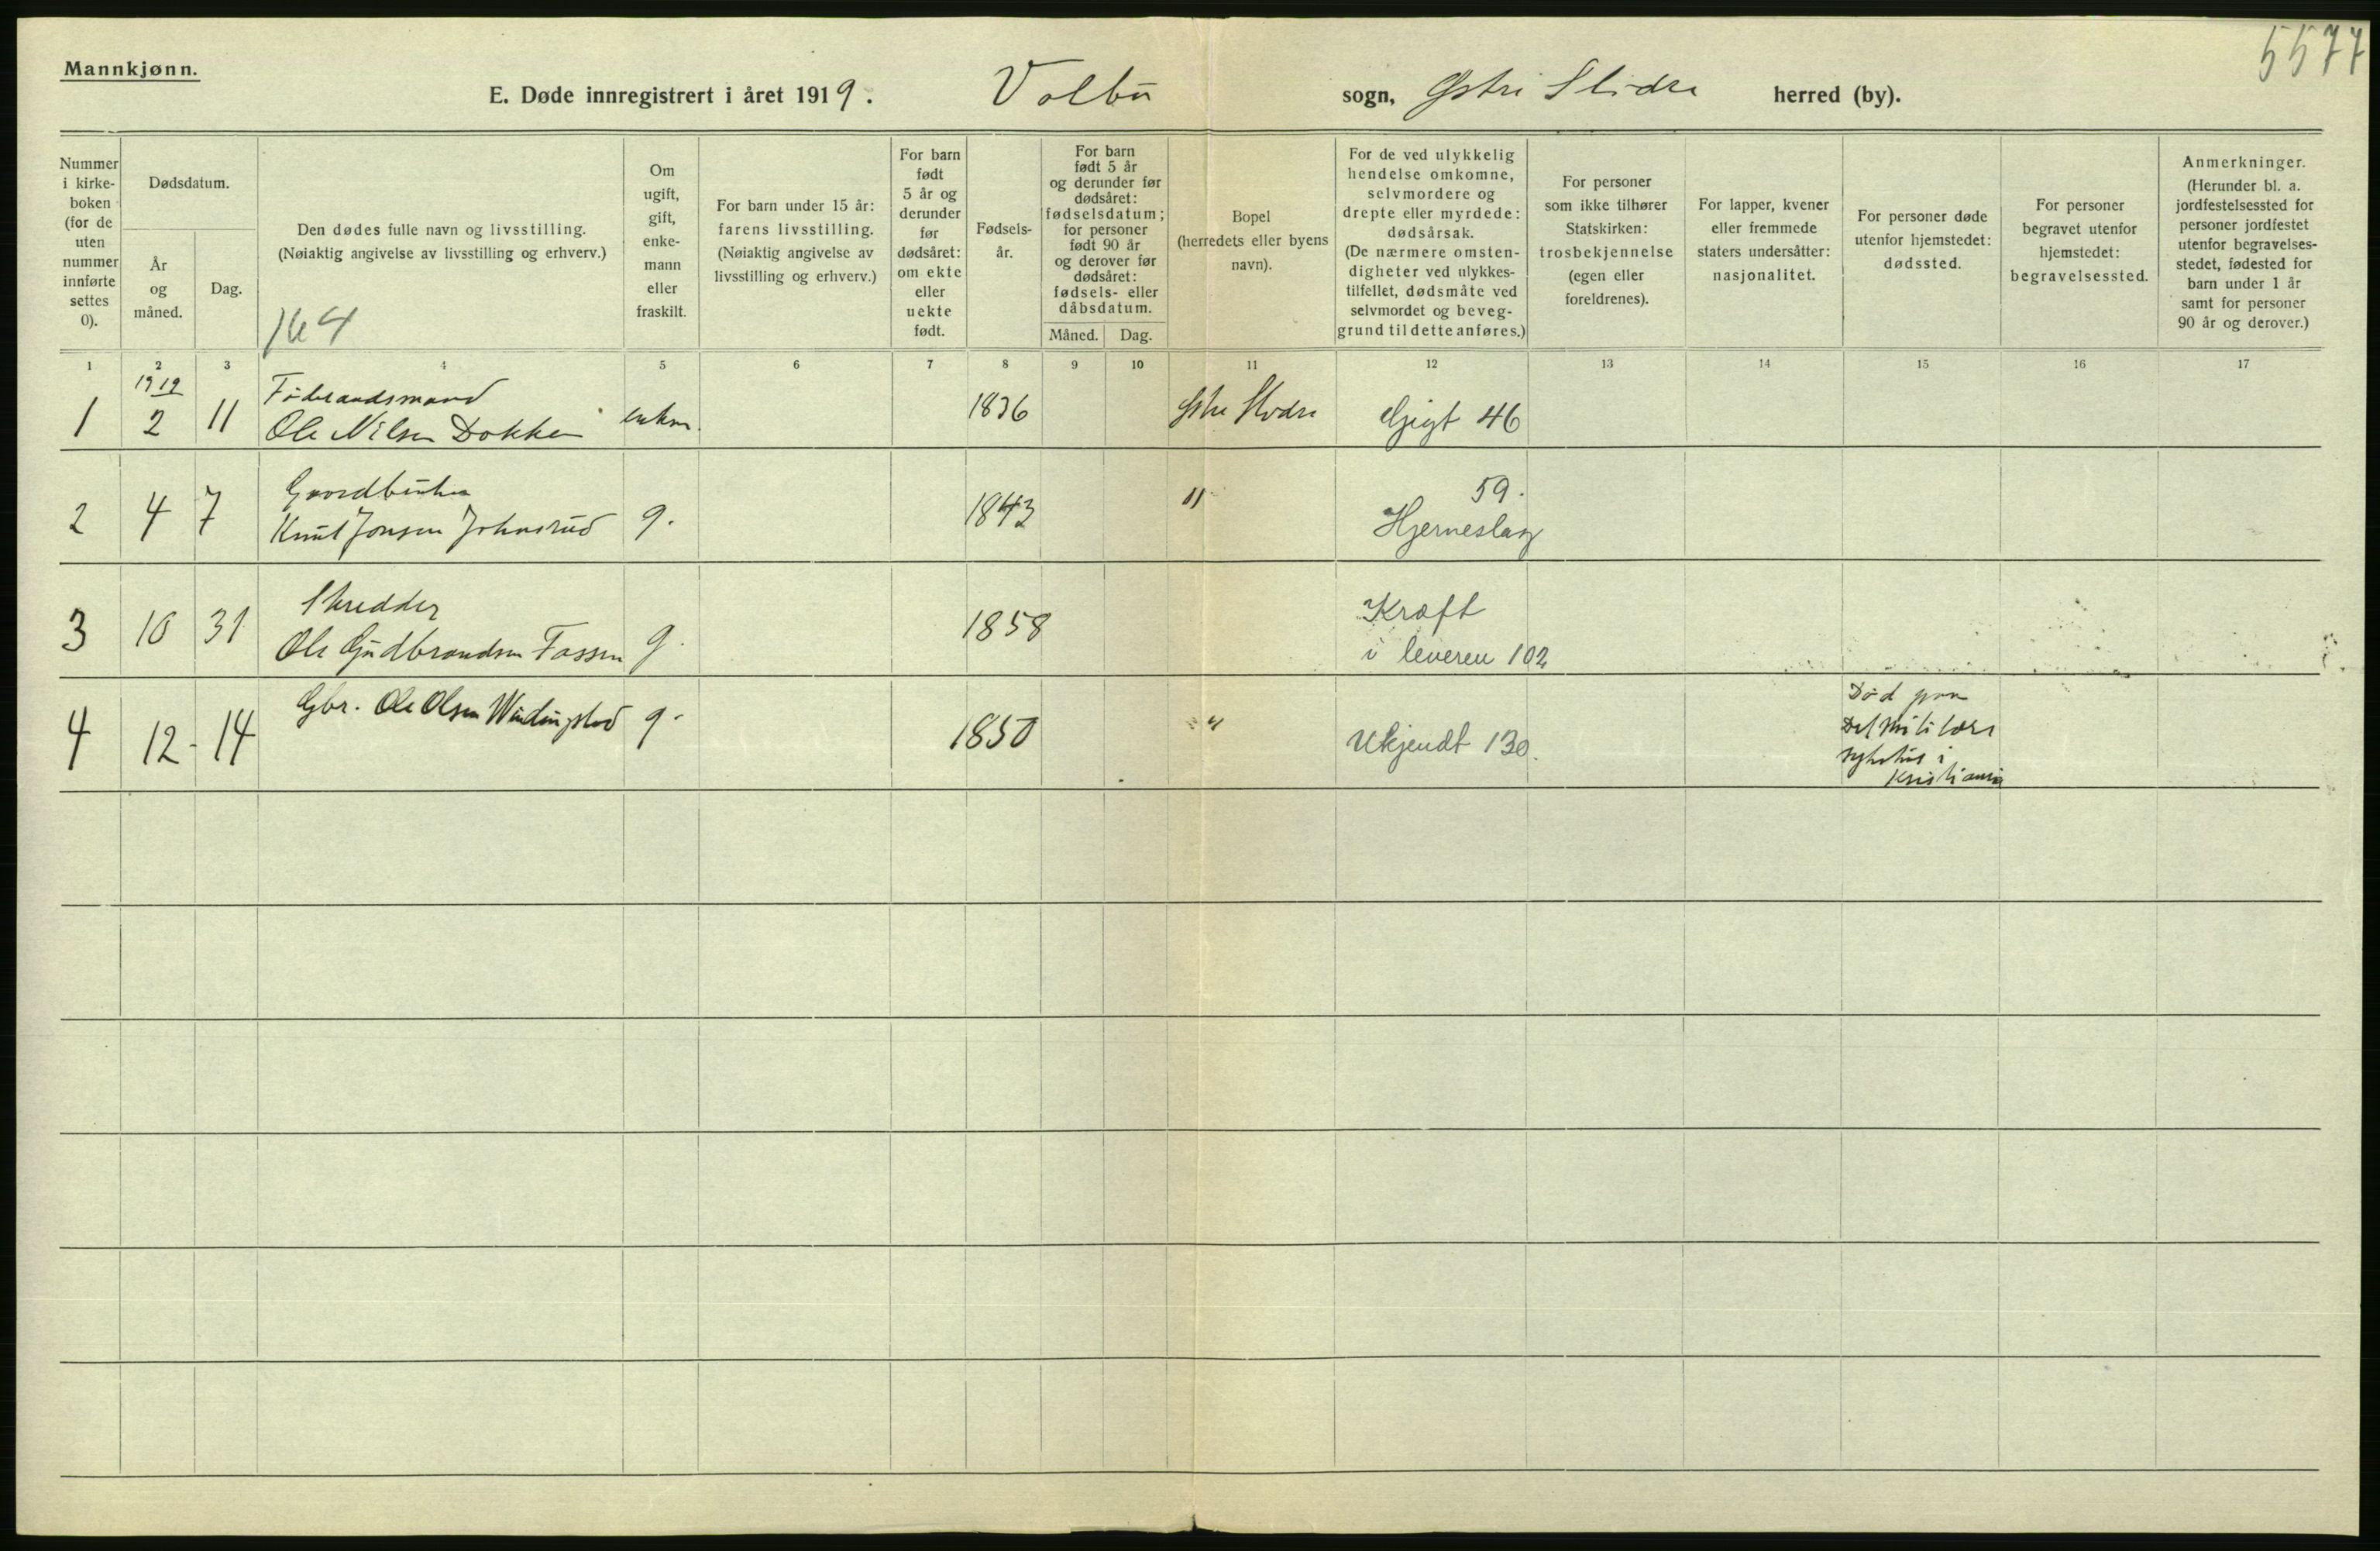 5577
Mannkjønn.
E. Døde innregistrert i året 1919. Volbu sogn, Østre Slidre herred (by).
Nummer
i kirke-
boken
(for de
uten
nummer
innførte
settes
0).
Dødsdatum.
År
og
måned.
Dag.
Den dødes fulle navn og livsstilling.
(Nøiaktig angivelse av livsstilling og erhverv.)
164
Om
ugift,
gift,
enke-
mann
eller
fraskilt.
For barn under 15 år:
farens livsstilling.
(Nøiaktig angivelse av
livsstilling og erhverv.)
For barn
født
5 år og
derunder
før
dødsåret:
om ekte
eller
uekte
født.
Fødsels-
år.
For barn
født 5 år
og derunder før
dødsåret:
fødselsdatum;
for personer
født 90 år
og derover før
dødsåret:
fødsels- eller
dåbsdatum.
Måned. Dag.
Bopel
(herredets eller byens
navn).
For de ved ulykkelig
hendelse omkomne,
selvmordere og
drepte eller myrdede:
dødsårsak.
(De nærmere omsten-
digheter ved ulykkes-
tilfellet, dødsmåte ved
selvmordet og beveg-
grund til dette anføres.)
For personer
som ikke tilhører
Statskirken:
trosbekjennelse
(egen eller
foreldrenes).
For lapper, kvener
eller fremmede
staters undersåtter:
nasjonalitet.
For personer døde
utenfor hjemstedet:
dødssted.
For personer
begravet utenfor
hjemstedet:
begravelsessted.
Anmerkninger.
(Herunder bl. a.
jordfestelsessted for
personer jordfestet
utenfor begravelses-
stedet, fødested for
barn under 1 år
samt for personer
90 år og derover.)
1 2 3 4 5 6 7 8 9 10 11 12 13 14 15 16 17
1919
Føderaadsmand
1 2 11 Ole Nilsen Dokken enkm. 1836 Østre Slidre Gigt 46
Gaardbruker 59.
2 4 7 Knut Jonsen Johnsrud g. 1843 " Hjerneslag
Skredder Kræft
3 10 31 Ole Gudbrandsen Fossen g. 1858 i leveren 102
4 12 - 14 Gbr. Ole Olsen g. 1850 " Ukjendt 130.
Død paa
Det Militære
sykehus i
Kristiania